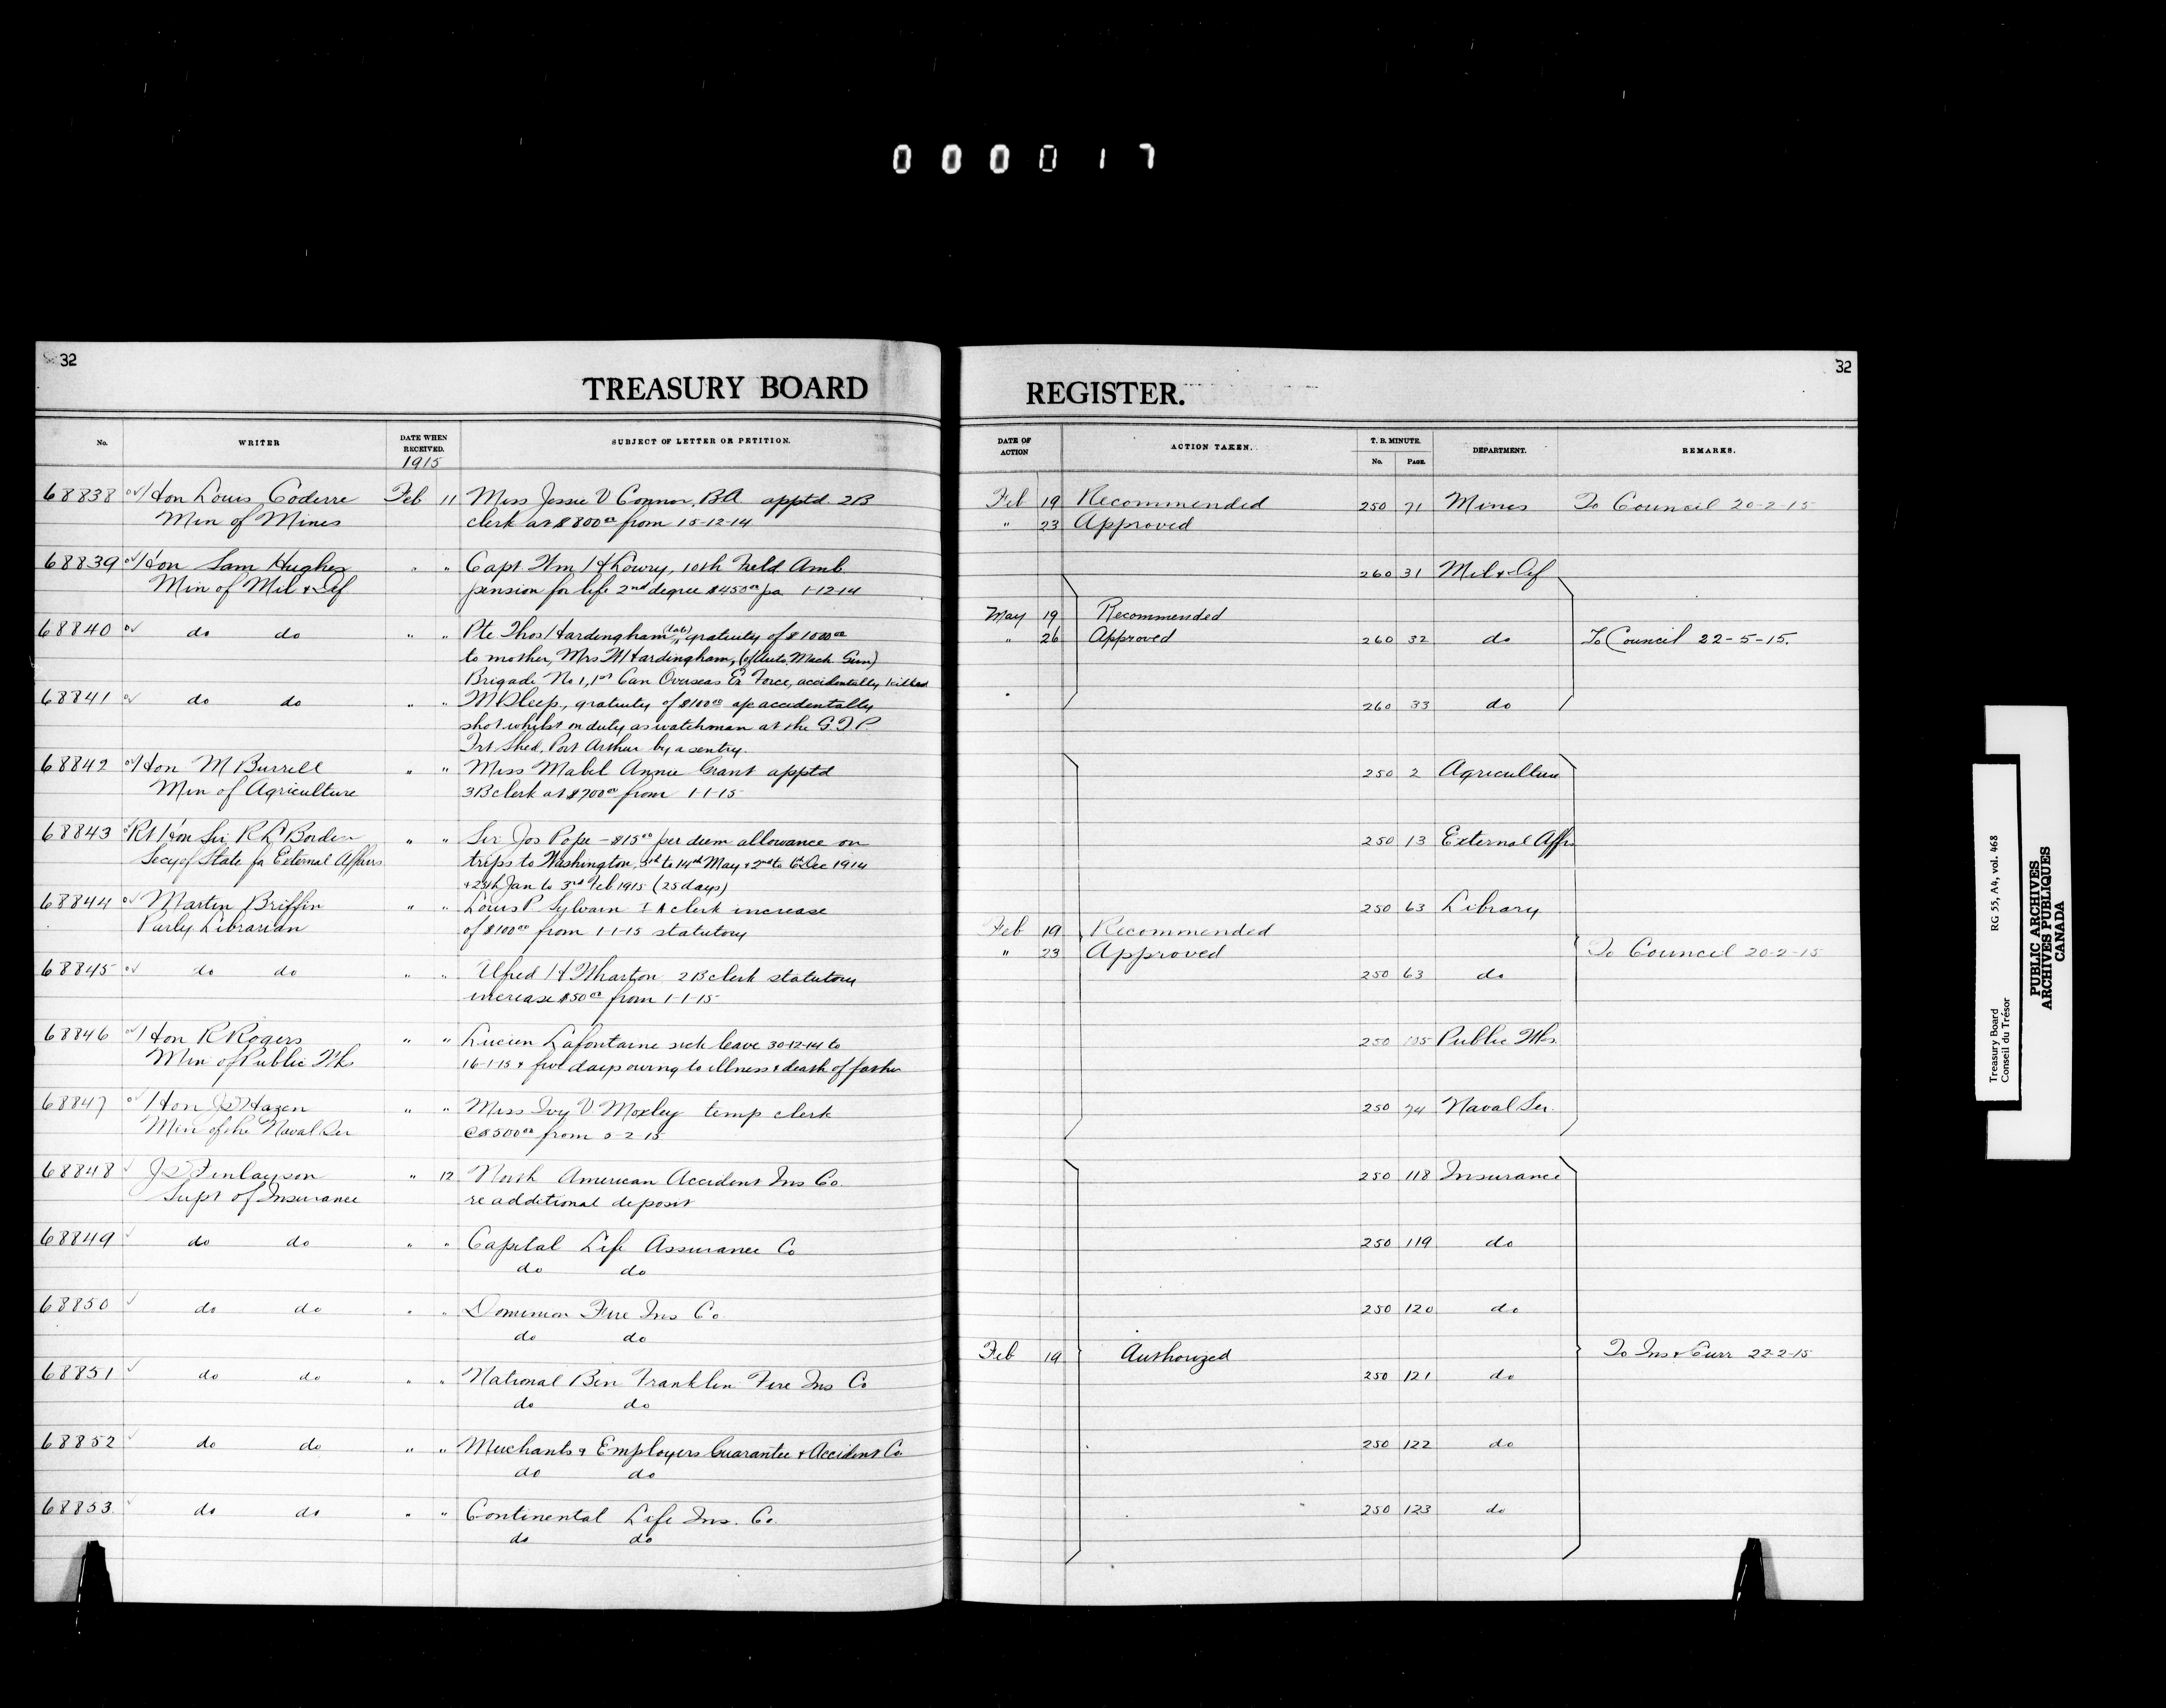 000017
32
TREASURY BOARD
No.
WRITER
DATE WHEN RECEIVED.
1915
SUBJECT OF LETTER OR PETITION.
68838 Hon Louis Coderre Feb 11 Miss Jessie V Connor, BA apptd 2B
Min of Mines clerk at $800 00 from 15-12-14
68839 Hon Sam Hughes " " Capt Wm H Lowry, 10th Field Amb
Min of Mil & Def pension for life 2nd degree $450 00 pa 1-12-14
68840 do do " " Pte Thos Hardingham (late) gratuity of $1000 00
to mother, Mrs M Hardingham, (of Auto. Mach Gun)
Brigade No 1, 1st Can Overseas Ex Force, accidentally killed
68841 do do " " gratuity of $100 00 accidentally
shot whilst on duty as watchman at the G.T.P.
Frt Shed, Port Arthur by a sentry.
68842 Hon M Burrell " " Miss Mabel Annie Grant apptd
Min of Agriculture 3B clerk at $700 00 from 1-1-15
68843 Rt Hon Sir R L Borden " " Sir Jos Pope - $15 00 per diem allowance on
Secy of State External Affairs trips to Washington, to 14th May & 2nd to 6th Dec 1914
Jan to 3rd Feb 1915 (25 days)
68844 Martin Griffin " " Louis P Sylvain clerk increase
Parly Librarian of $100 00 from 1-1-15 statutory
68845 do do " " Alfred H Wharton 2B clerk statutory
increase $50 00 from 1-1-15
68846 Hon R Rogers " " Lucien Lafontaine sick leave 30-12-14 to
Min of Public Wks 16-1-15 & five days owing to illness & death of father
68847 Hon J D Hazen " " Miss Ivy V Moxley temp clerk
Min of the Naval Ser @ $500 00 from 2-15
68848 Finlayson " 12 North American Accident Ins Co.
Supt of Insurance re additional deposit
68849 do do " " Capital Life Assurance Co
do do
68850 do do " " Dominion Fire Ins Co
do do
68851 do do " " National Ben Franklin Fire Ins Co
do do
68852 do do " " Merchants & Employers Guarantee & Accident Co
do do
68853 do do " " Continental Life Ins. Co.
do do
32
REGISTER.
DATE OF ACTION
ACTION TAKEN.
T. B. MINUTE.
No.
PAGE.
DEPARTMENT.
REMARKS.
Feb 19 Recommended 250 71 Mines To Council 20-2-15
" 23 Approved
260 31 Mil & Def
May 19 Recommended
" 26 Approved 260 32 do To Council 22-5-15.
260 33 do
250 2 Agriculture
250 13 External Affrs
250 63 Library
Feb 19 Recommended
" 23 Approved To Council 20-2-15
250 63 do
250 Public Wks
250 74 Naval Ser.
250 118 Insurance
250 119 do
250 120 do
Feb 19 Authorized To Ins & Curr 22-2-15
250 121 do
250 122 do
250 123 do
Treasury Board RG 55, A4, vol. 468
Conseil du Trésor
PUBLIC ARCHIVES
ARCHIVES PUBLIQUES
CANADA